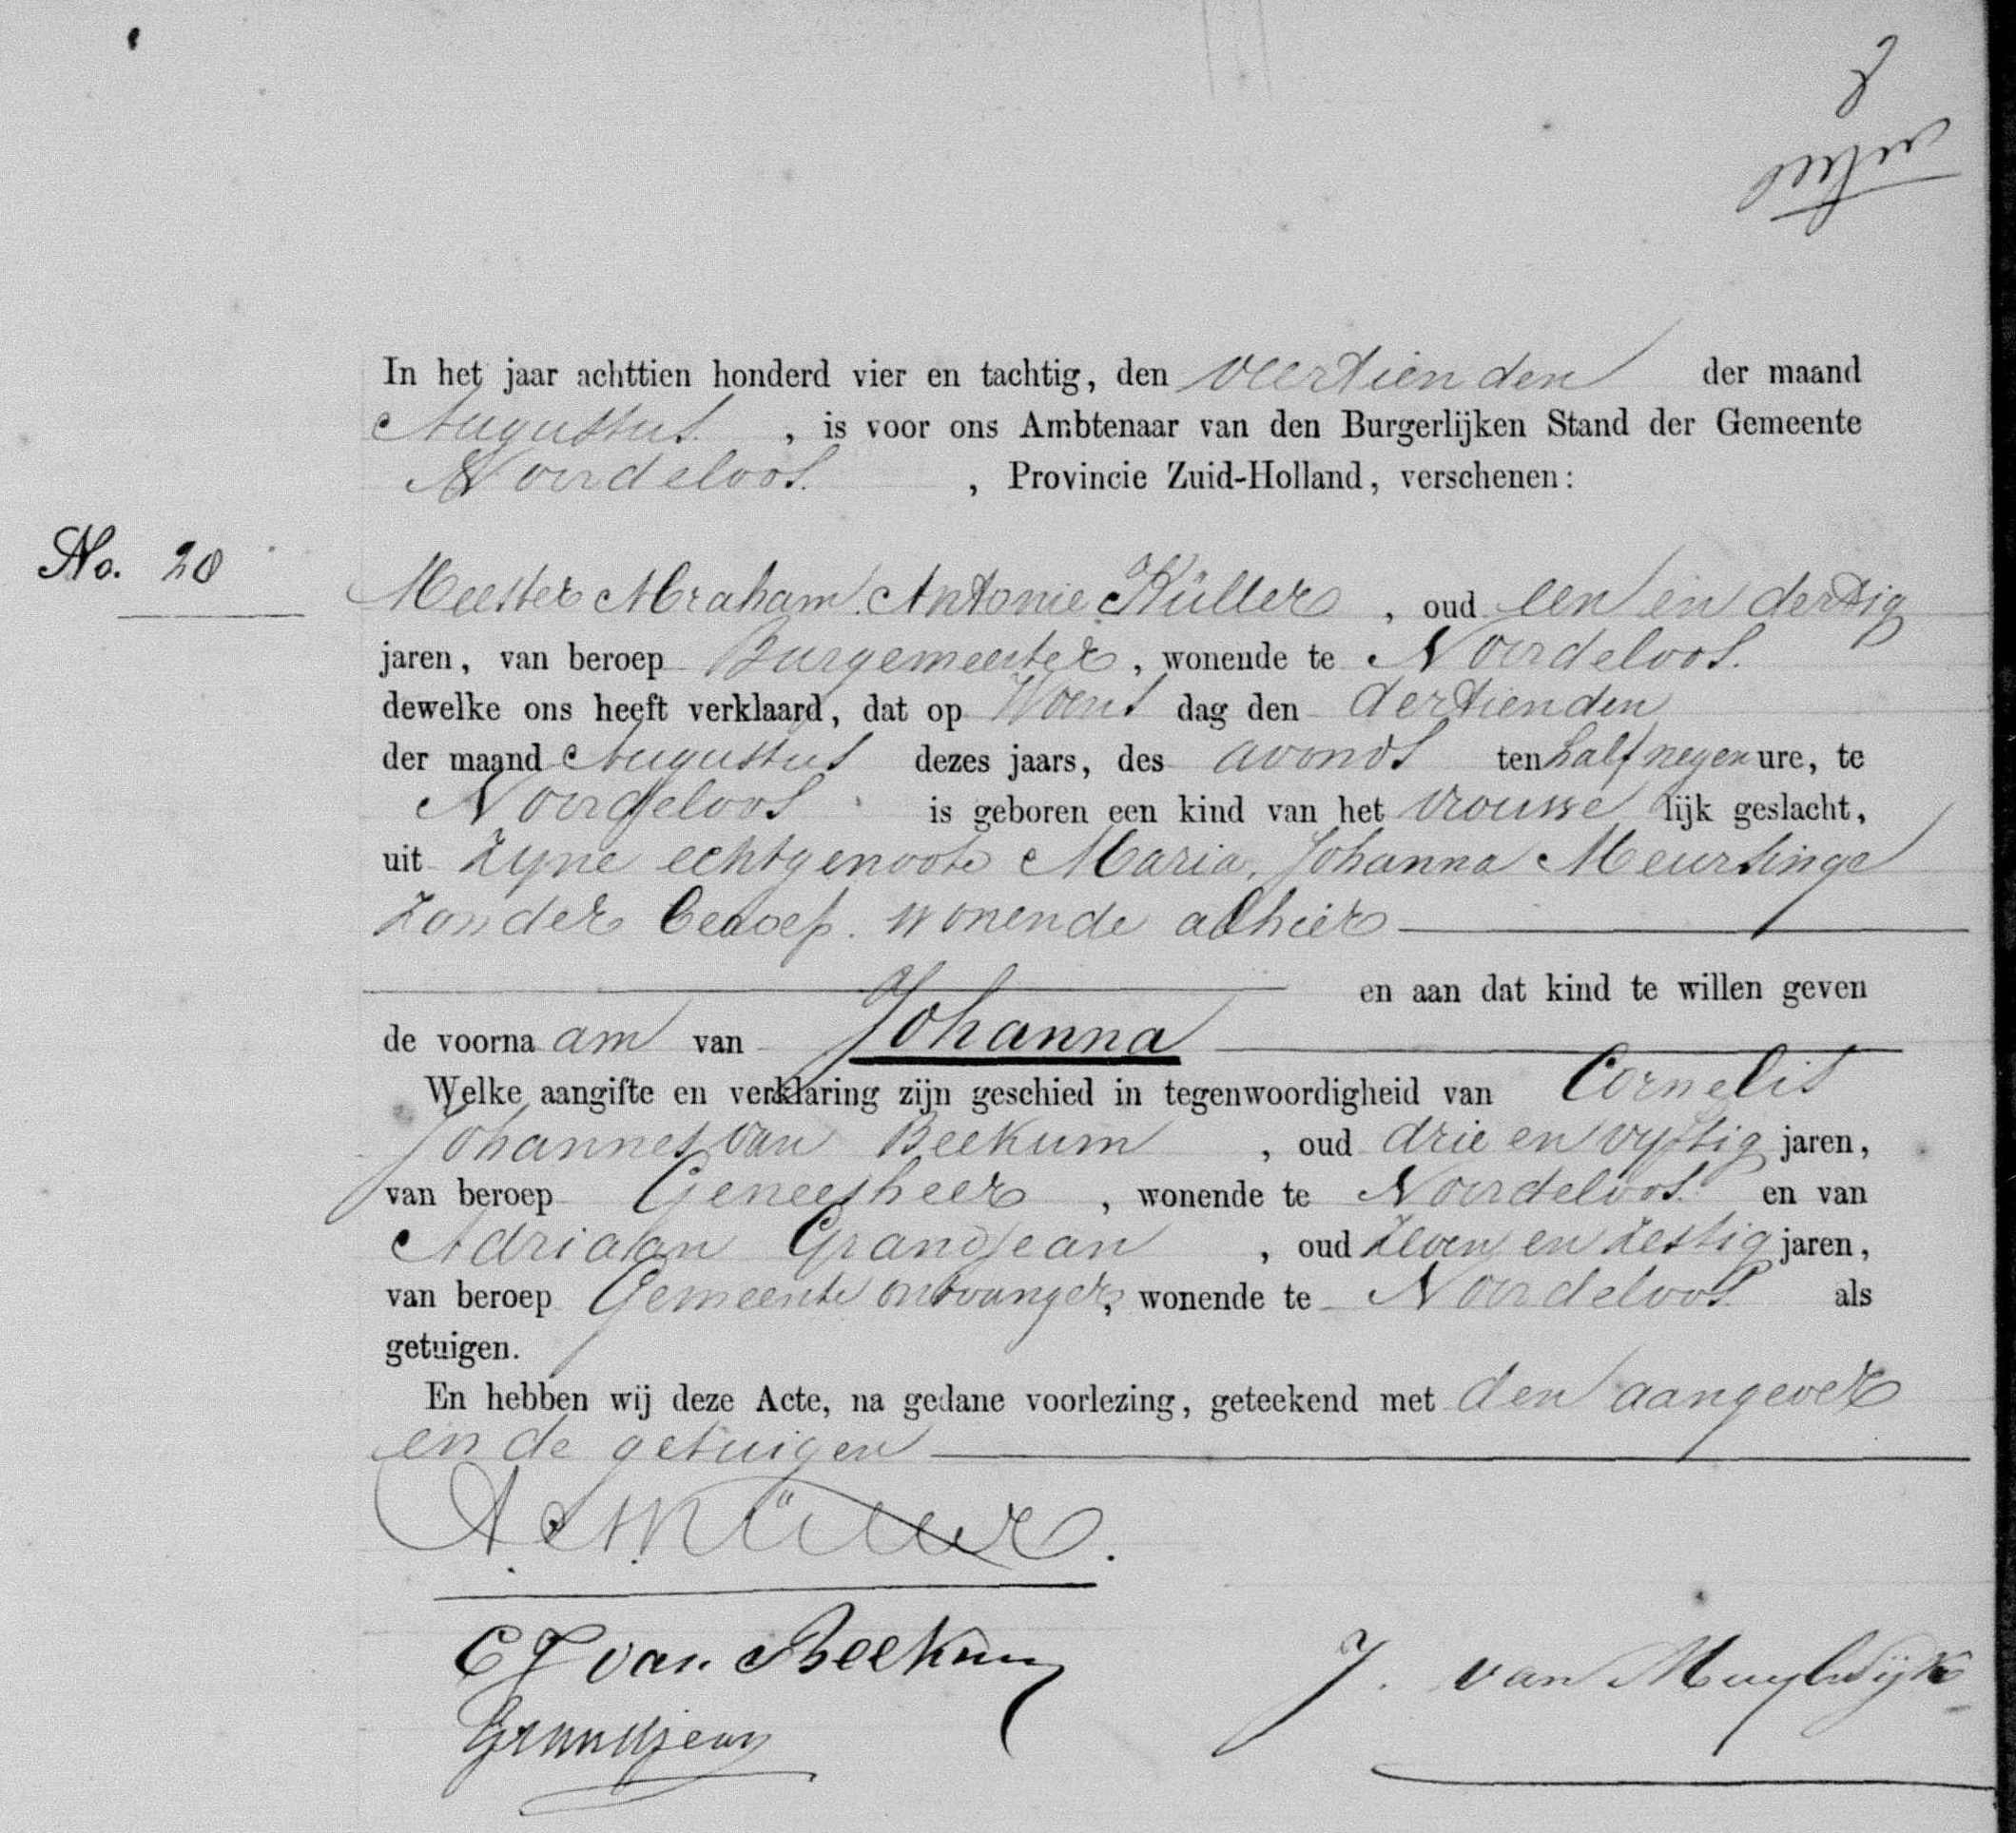 In het jaar achttien honderd vier en tachtig, den veertienden der maand
Augustus, is voor ons Ambtenaar van den Burgerlijken Stand der Gemeente
Noordeloos, Provincie Zuid-Holland, verschenen:
No. 20
Meester Abraham Antonie Küller, oud een en dertig
jaren, van beroep Burgemeester, wonende te Noordeloos.
dewelke ons heeft verklaard, dat op Woens dag den dertienden
der maand Augustus dezes jaars, des avonds ten half negen ure, te
Noordeloos is geboren een kind van het vrouwe lijk geslacht,
uit zyne echtgenoote Maria Johanna Meursinge
zonder beroep. wonende alhier
en aan dat kind te willen geven
de voorna am van Johanna
Welke aangifte en verklaring zijn geschied in tegenwoordigheid van Cornelis
Johannes van Beekum, oud drie en vyftig jaren,
van beroep Geneesheer, wonende te Noordeloos en van
Adriaan Grandjean, oud zeven en zestig jaren,
van beroep Gemeente ontvanger, wonende te Noordeloos als
getuigen.
En hebben wij deze Acte, na gedane voorlezing, geteekend met den aangever
en de getuigen
A. A. Küller.
C J van Beekum
J. van Muylwijk
Grandjean